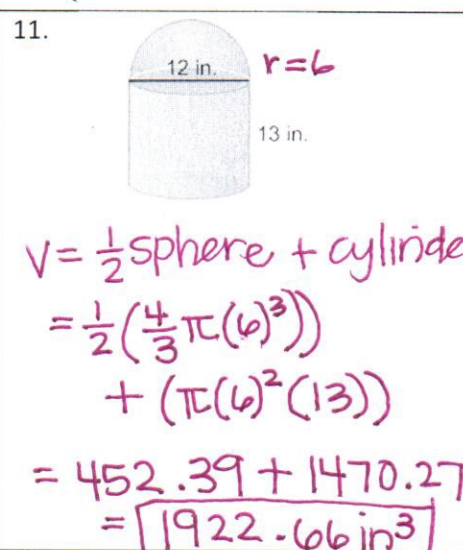 11.
12 in. r=6
13 in.
V = 1/2 sphere + cylinde
= 1/2 (4/3 π(6)³))
+ (π(6)²(13))
= 452.39 + 1470.27
= 1922.66 in³